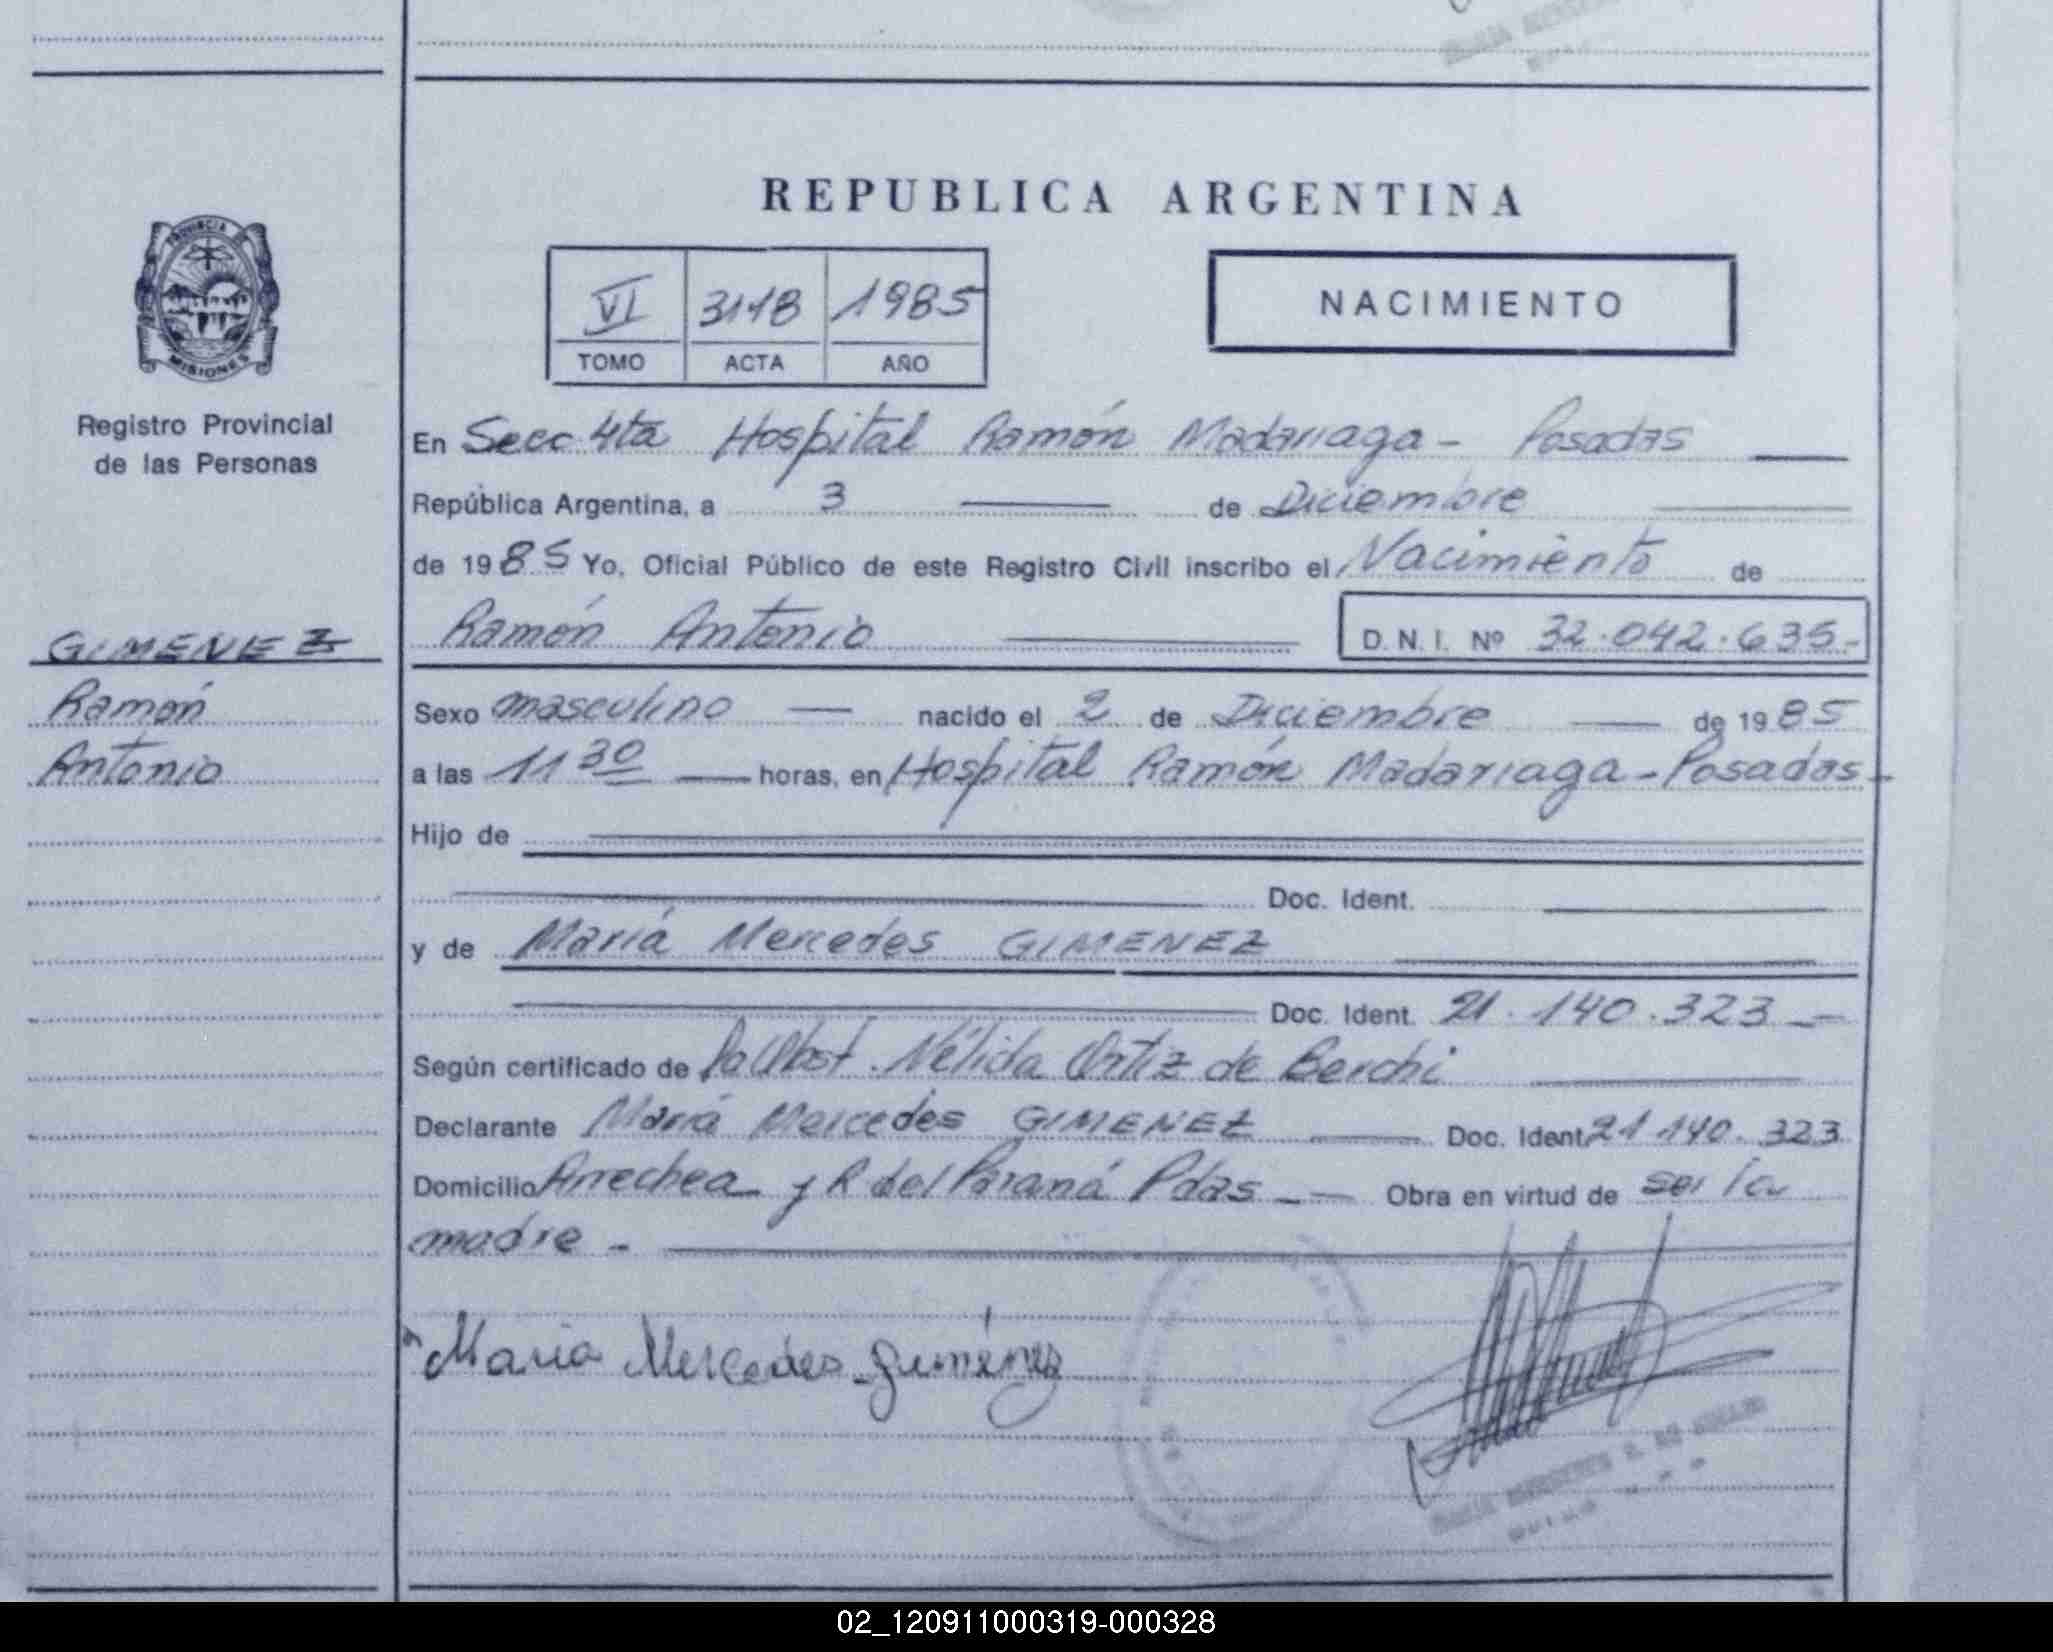 REPUBLICA ARGENTINA
PROVINCIA DE
MISIONES
Registro Provincial
de las Personas
VI 3118 1985
TOMO ACTA AÑO
NACIMIENTO
En Secc 4ta Hospital Ramón Madariaga - Posadas
República Argentina, a 3 de Diciembre
de 1985 Yo, Oficial Público de este Registro Civil inscribo el Nacimiento de
Ramón Antonio D. N. I. Nº 32.042.635.-
GIMENEZ
Ramón
Antonio
Sexo masculino nacido el 2 de Diciembre de 1985
a las 11 30 horas, en Hospital Ramón Madariaga - Posadas -
Hijo de
Doc. Ident.
y de María Mercedes GIMENEZ
Doc. Ident. 21.140.323
Según certificado de Nélida Ortiz de Berchi
Declarante María Mercedes GIMENEZ Doc. Ident 21 140. 323
Domicilio Arrechea y R del Paraná Pdas - Obra en virtud de ser la
madre -
Maria Mercedes Giménez
02_120911000319-000328